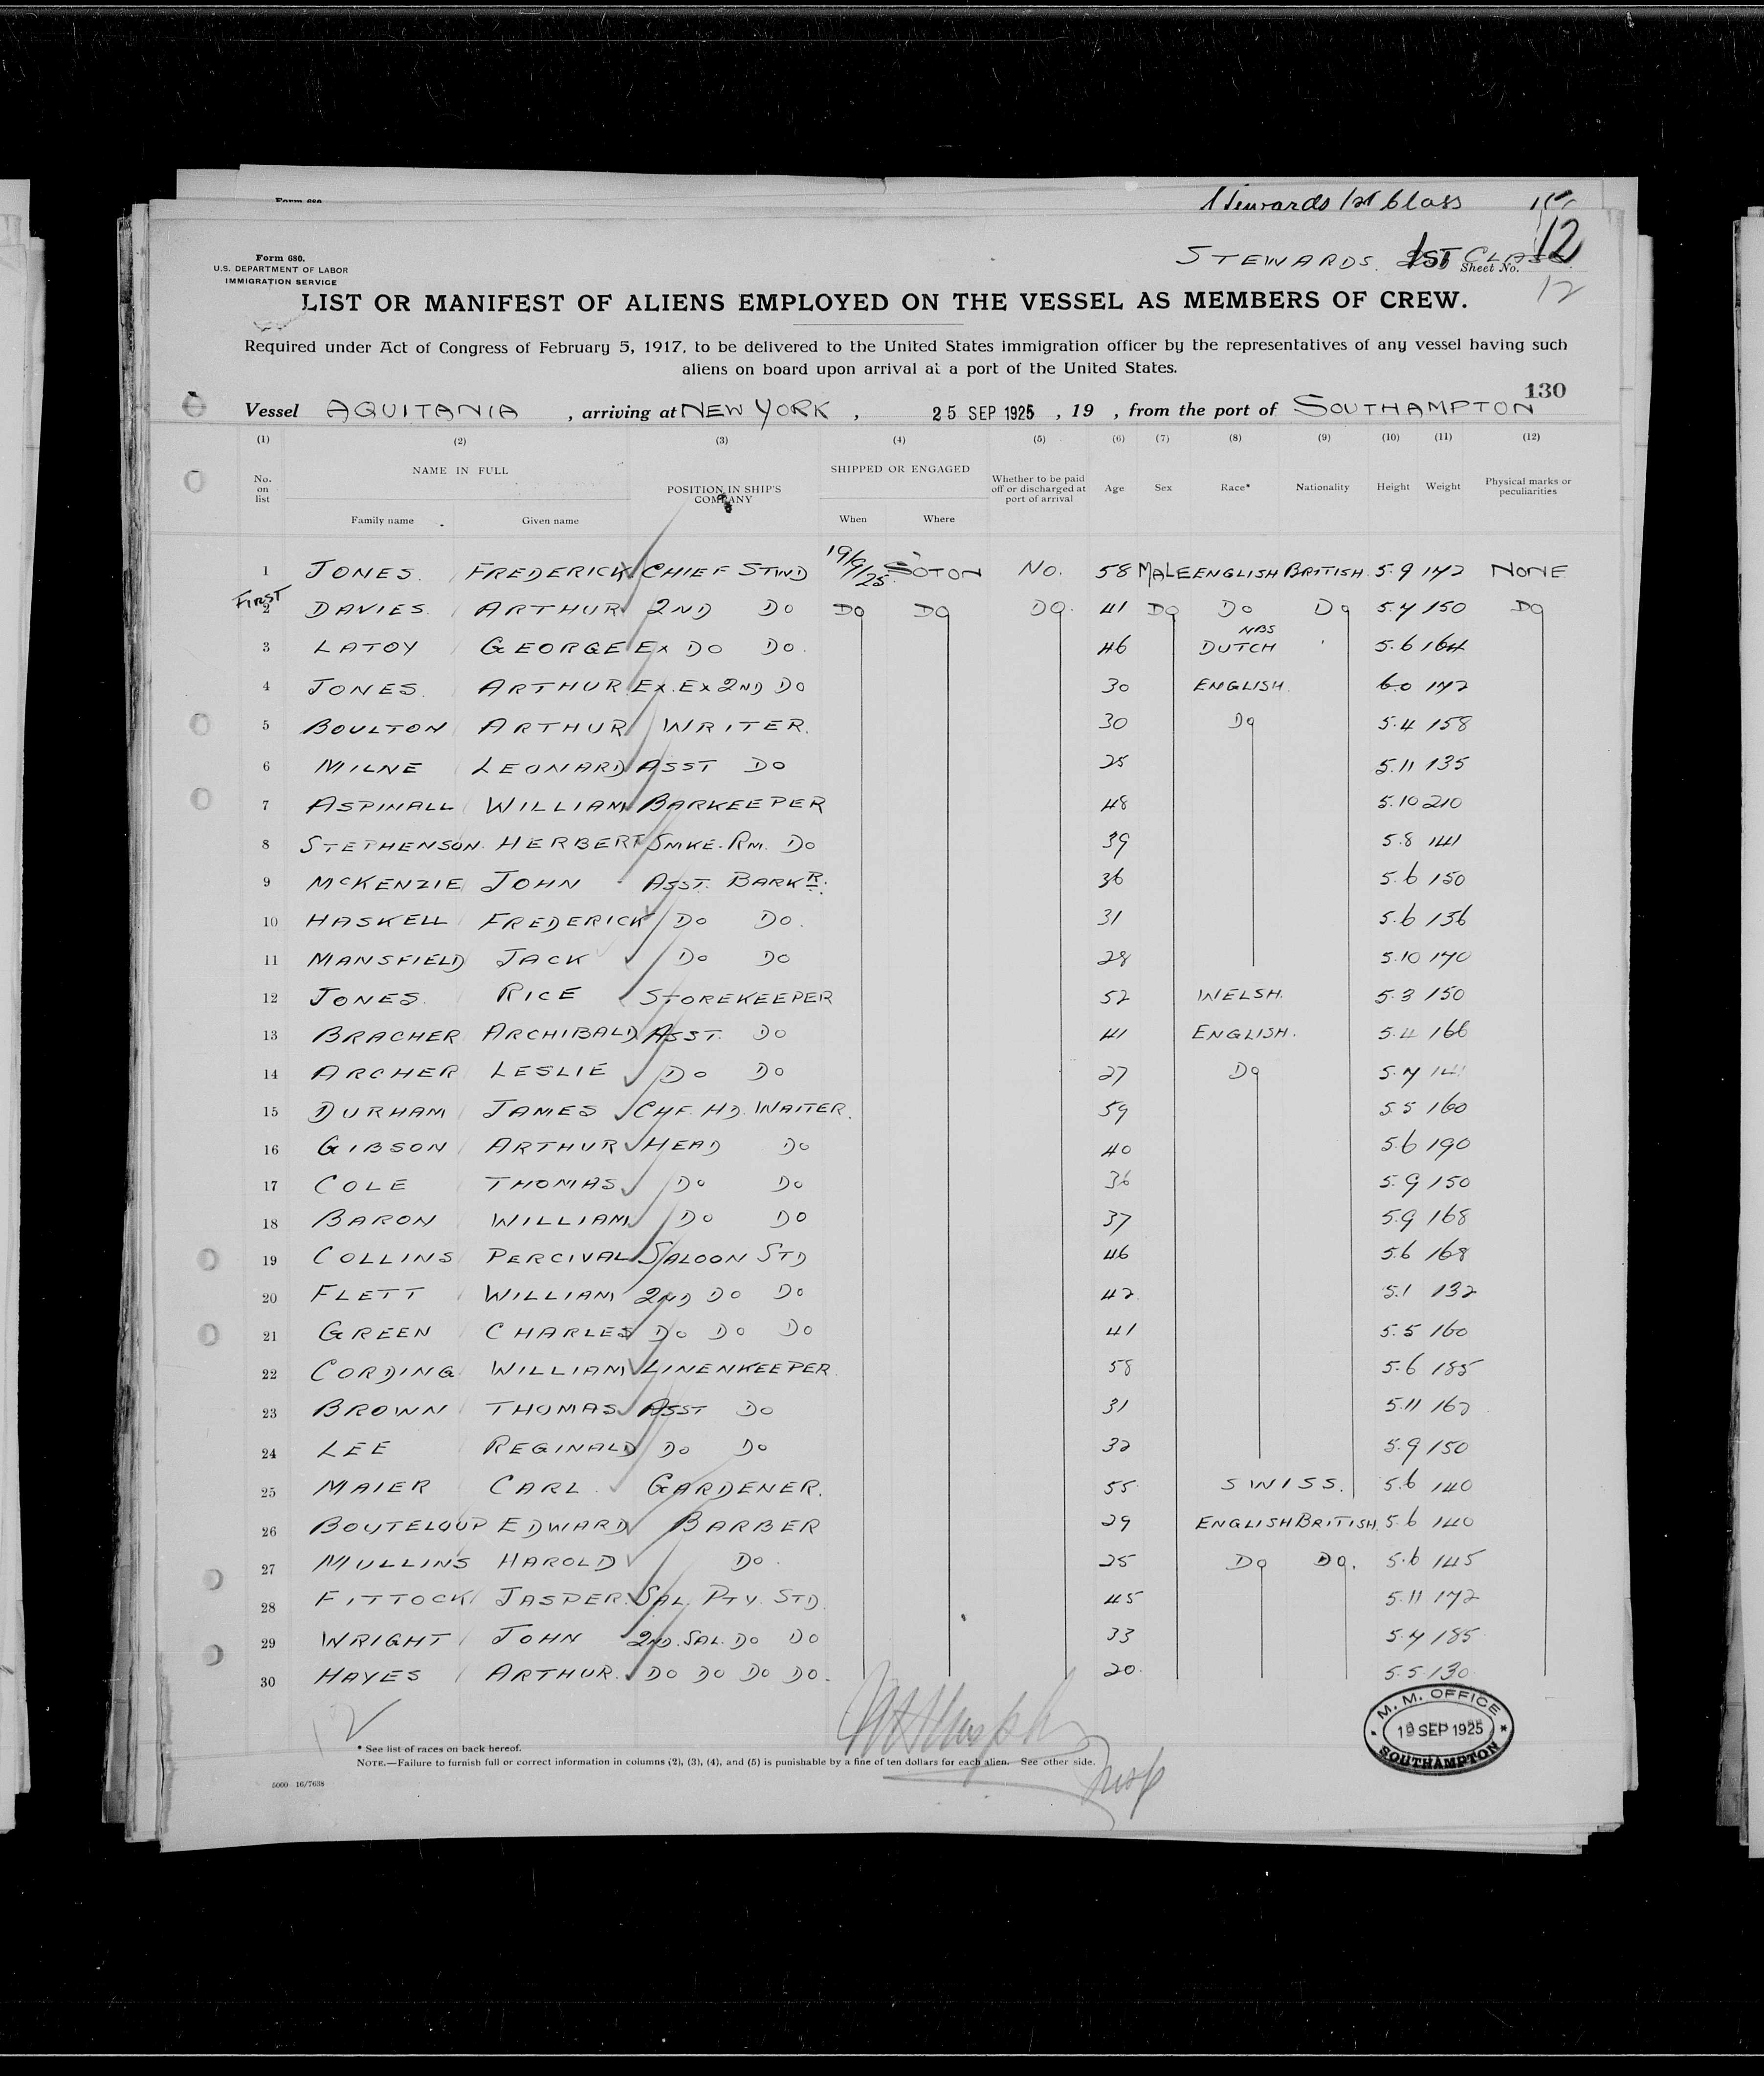 Form 680.
Stewards 1st Class
Form 680.
U.S. DEPARTMENT OF LABOR
IMMIGRATION SERVICE
STEWARDS. 1ST CLASS.
Sheet No. 12
12
LIST OR MANIFEST OF ALIENS EMPLOYED ON THE VESSEL AS MEMBERS OF CREW.
Required under Act of Congress of February 5, 1917, to be delivered to the United States immigration officer by the representatives of any vessel having such
aliens on board upon arrival at a port of the United States.
130
Vessel AQUITANIA , arriving at NEW YORK , 25 SEP 1925 , 19 , from the port of SOUTHAMPTON
(1) (2) (3) (4) (5) (6) (7) (8) (9) (10) (11) (12)
No. on list NAME IN FULL Family name Given name POSITION IN SHIP'S COMPANY SHIPPED OR ENGAGED When Where Whether to be paid off or discharged at port of arrival Age Sex Race* Nationality Height Weight Physical marks or peculiarities
1 JONES. FREDERICK CHIEF STWD 19/9/25 SOTON NO. 58 MALE ENGLISH BRITISH 5.9 142 NONE
FIRST
2 DAVIES. ARTHUR 2ND DO DO DO DO. 41 DO DO DO 5.4 150 DO
NBS
3 LATOY GEORGE EX DO DO. 46 DUTCH 5.6 164
4 JONES. ARTHUR. EX. EX 2ND DO 30 ENGLISH. 6.0 172
5 BOULTON ARTHUR WRITER. 30 DO 5.4 158
6 MILNE LEONARD ASST DO 25 5.11 135
7 ASPINALL WILLIAM BARKEEPER 48 5.10 210
8 STEPHENSON. HERBERT SMKE. RM. DO 39 5.8 141
9 MCKENZIE JOHN ASST. BARKR. 36 5.6 150
10 HASKELL FREDERICK DO DO. 31 5.6 156
11 MANSFIELD JACK DO DO 28 5.10 170
12 JONES. RICE STOREKEEPER 52 WELSH. 5.3 150
13 BRACHER ARCHIBALD ASST. DO 41 ENGLISH. 5.4 166
14 ARCHER LESLIE DO DO 27 DO 5.7
15 DURHAM JAMES CHF. HD. WAITER. 59 5.5 160
16 GIBSON ARTHUR HEAD DO 40 5.6 190
17 COLE THOMAS DO DO 36 5.9 150
18 BARON WILLIAM DO DO 37 5.9 168
19 COLLINS PERCIVAL SALOON STD 46 5.6 168
20 FLETT WILLIAM 2ND DO DO 42 5.1 132
21 GREEN CHARLES DO DO DO 41 5.5 160
22 CORDING WILLIAM LINENKEEPER 58 5.6 185
23 BROWN THOMAS ASST DO 31 5.11 162
24 LEE REGINALD DO DO 32 5.9 150
25 MAIER CARL GARDENER. 55 SWISS. 5.6 140
26 BOUTELOUP EDWARD BARBER 29 ENGLISH BRITISH. 5.6 140
27 MULLINS HAROLD DO. 25 DO DO. 5.6 145
28 FITTOCK JASPER. SAL. PTY. STD. 45 5.11 172
29 WRIGHT JOHN 2ND. SAL. DO DO 33 5.7 185
30 HAYES ARTHUR. DO DO DO DO. 20 5.5 130
* See list of races on back hereof.
NOTE.—Failure to furnish full or correct information in columns (2), (3), (4), and (5) is punishable by a fine of ten dollars for each alien. See other side.
5000 16/7638
M. M. OFFICE
19 SEP 1925
SOUTHAMPTON